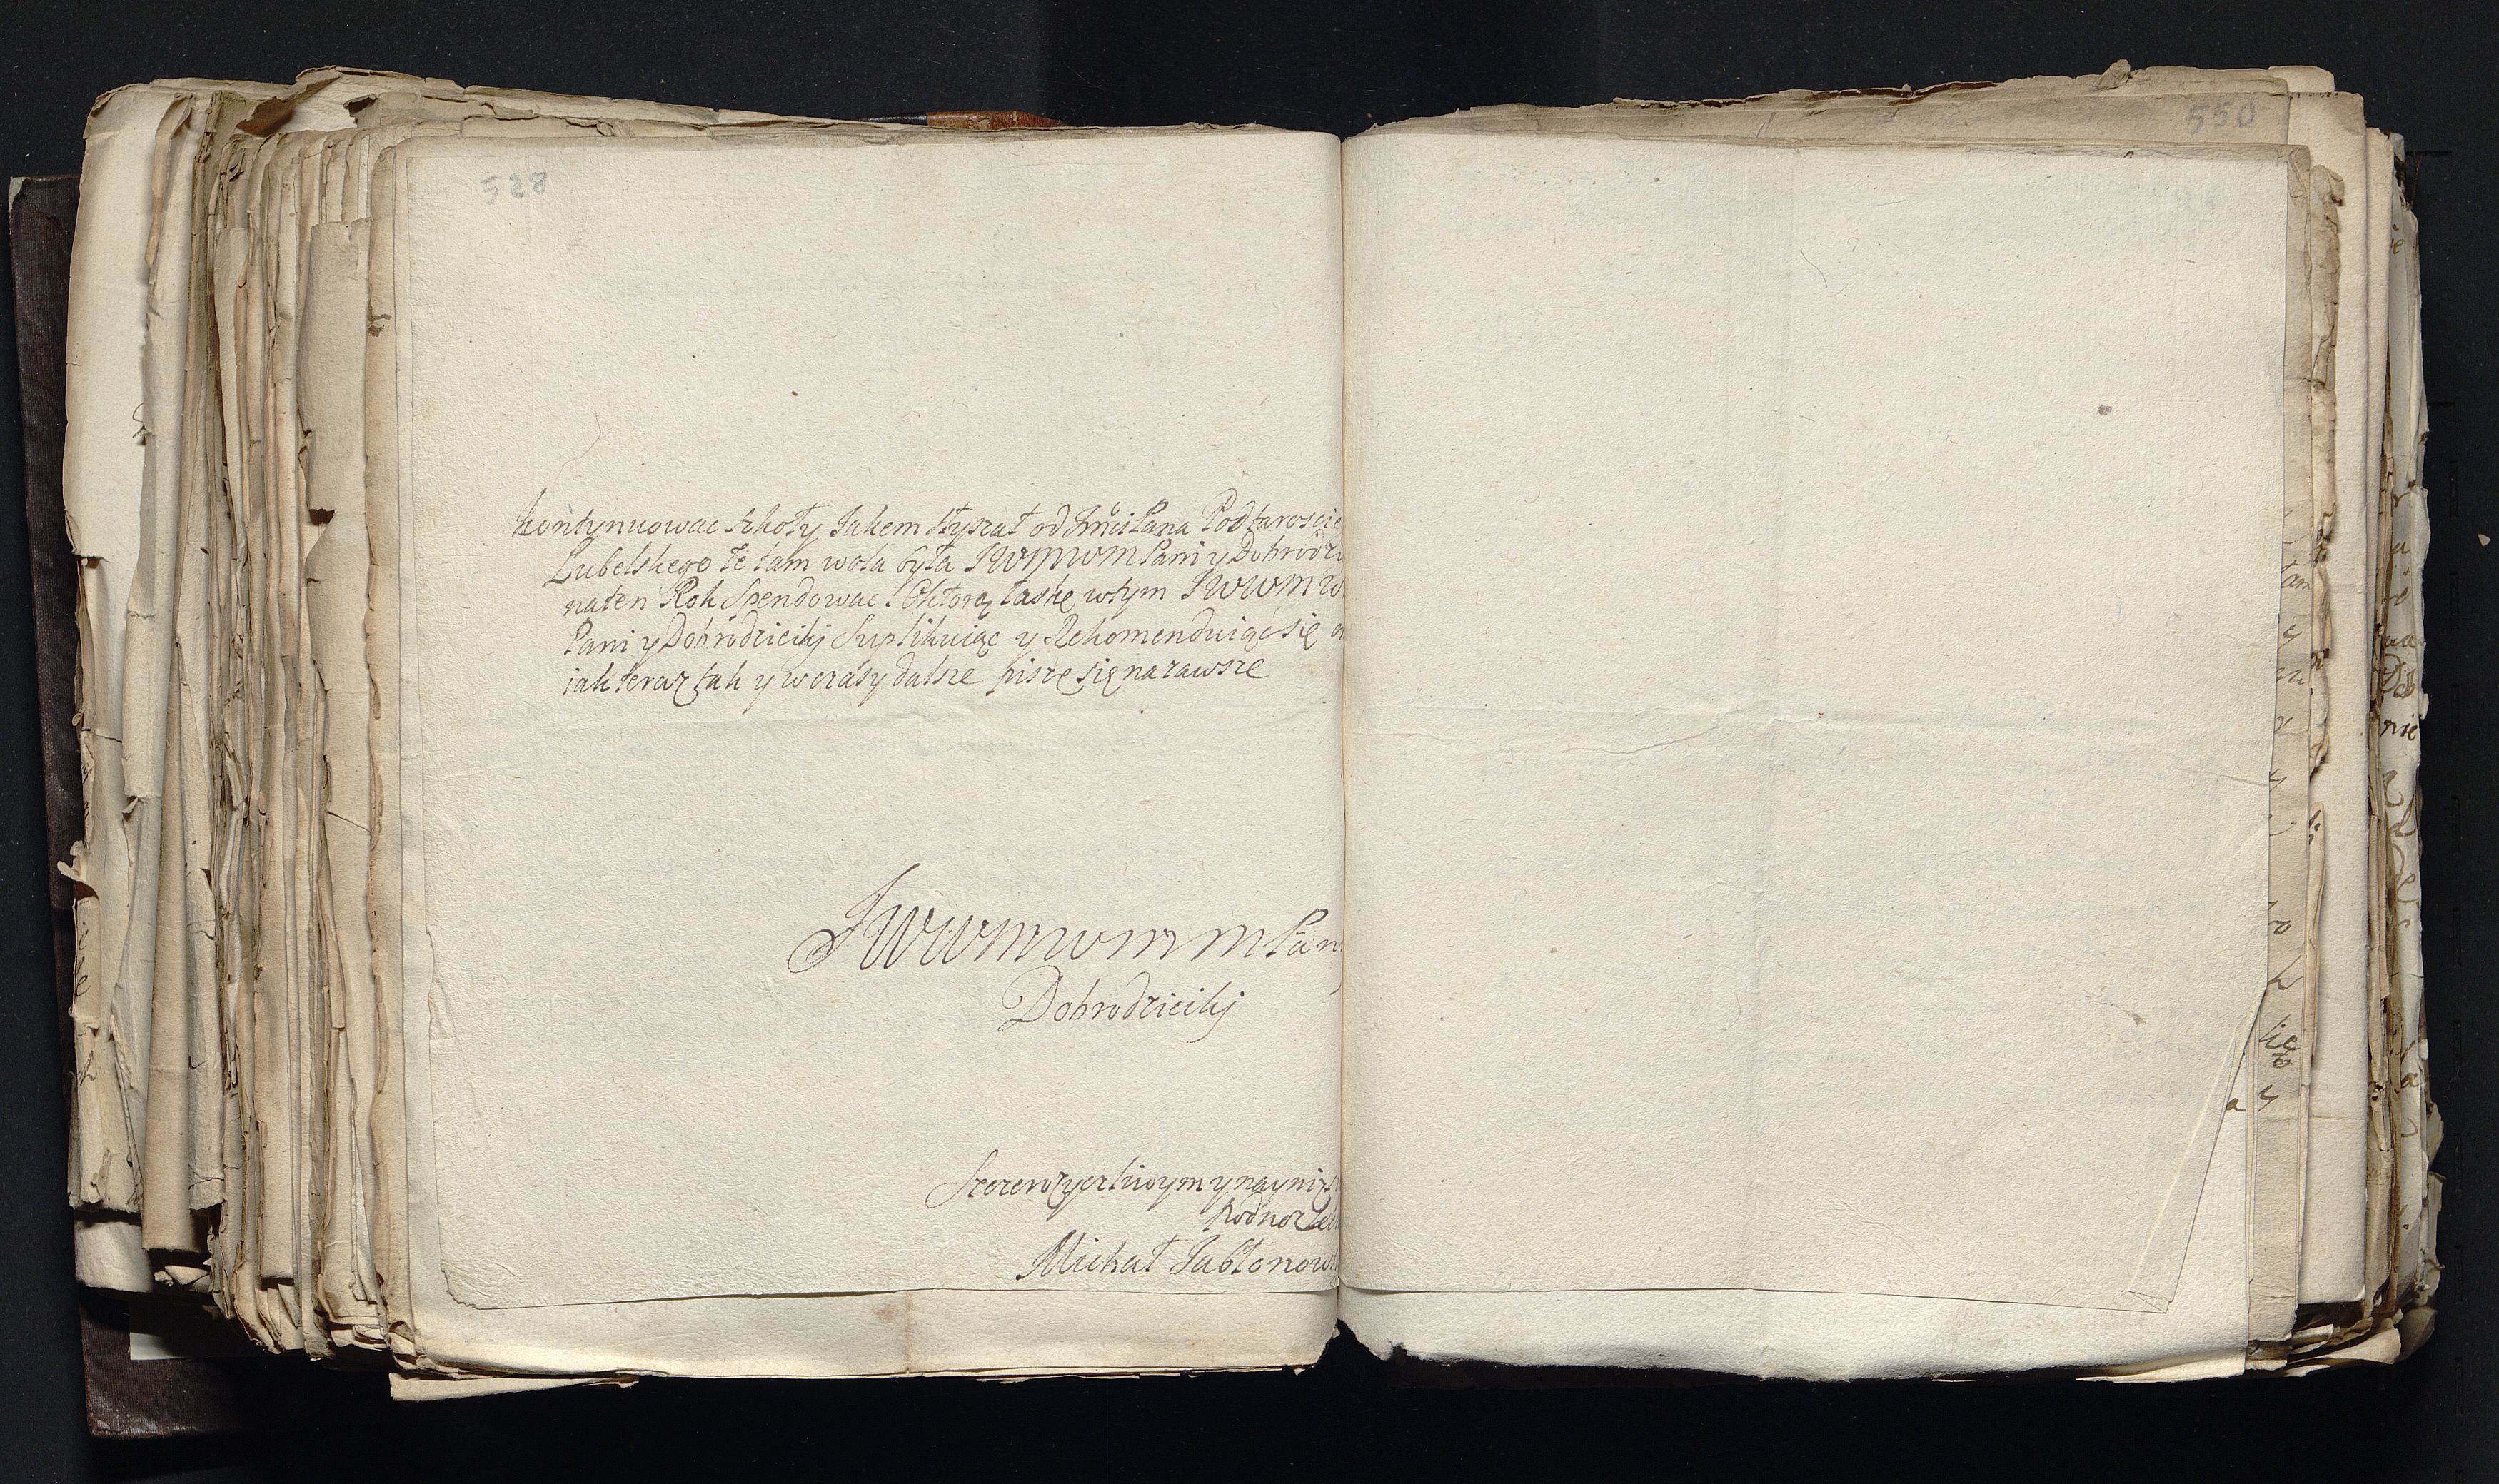 528
550
kontynuowac szkoły Jakem słyszał od Jmci Pana Podstaroście
Lubelskiego że tam wola była JWWMWM Pani y Dobrodzi
na ten Rok Spendowac. O ktorą łaskę w tym JWWMW
Pani y Dobrodzieiki Suplikuiąc y Rekomenduiąc się
iak teraz tak y w czasy dalsze piszę się na zawsze
JWWMWMM Pani
Dobrodzieiki
Szczerze życzliwym y naynizs
Michał Jabłonow